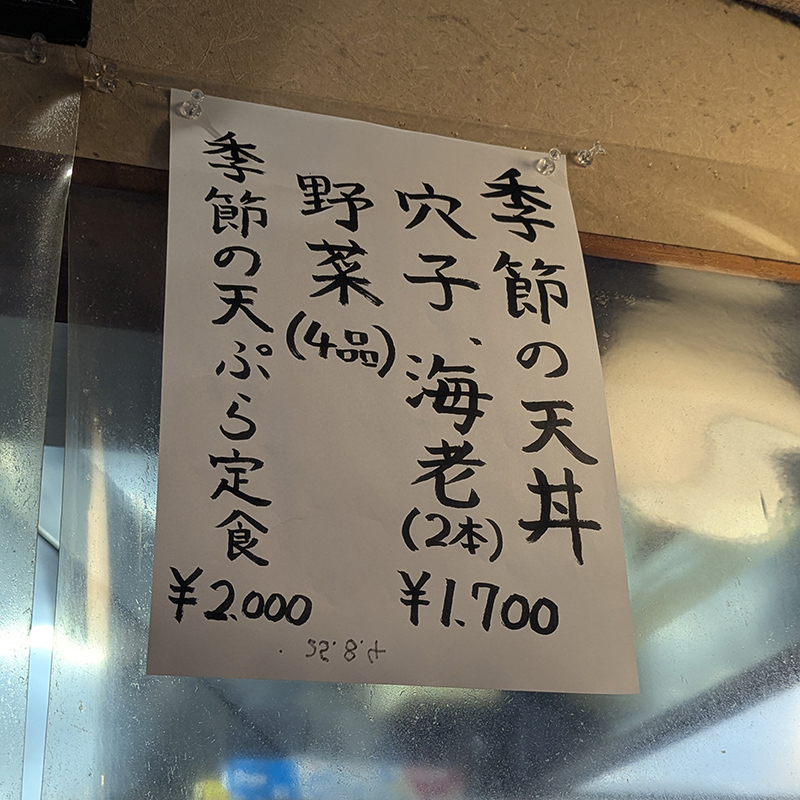 季節の天丼
穴子、海老(2本)
¥1.700
野菜(4品)
季節の天ぷら定食
¥2.000